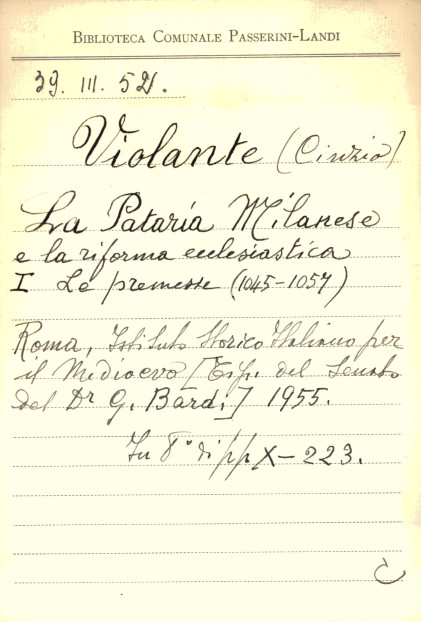 BIBLIOTECA COMUNALE PASSERINI-LANDI
39. III. 52.
Violante (Cinzio)
La Pataria Milanese
e la riforma ecclesiastica
I Le premesse (1045-1057)
Roma, Istituto Storico Italiano per
il Medioevo [Tip. del Senato
del Dr G. Bardi] 1955.
In 8° di pp X-223.
C